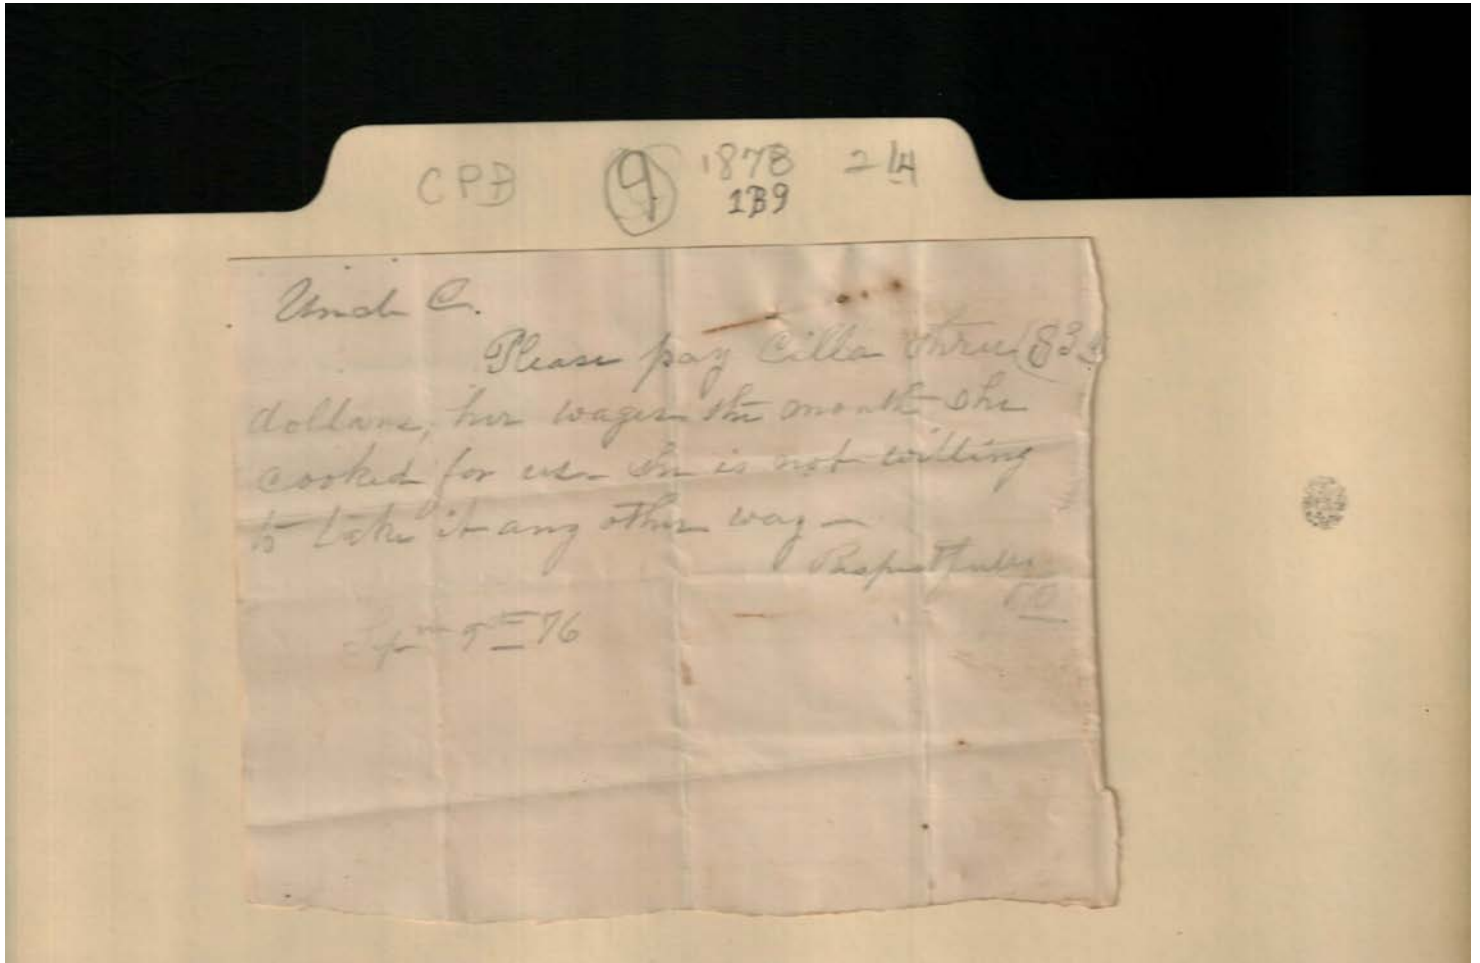 CPB 9 1878 2 14
1B9
Uncle C.
Please pay Cilla three ($3.
dollars, her wages the month she
cooked for us. She is not willing
to take it any other way —
Respectfully
9th 76